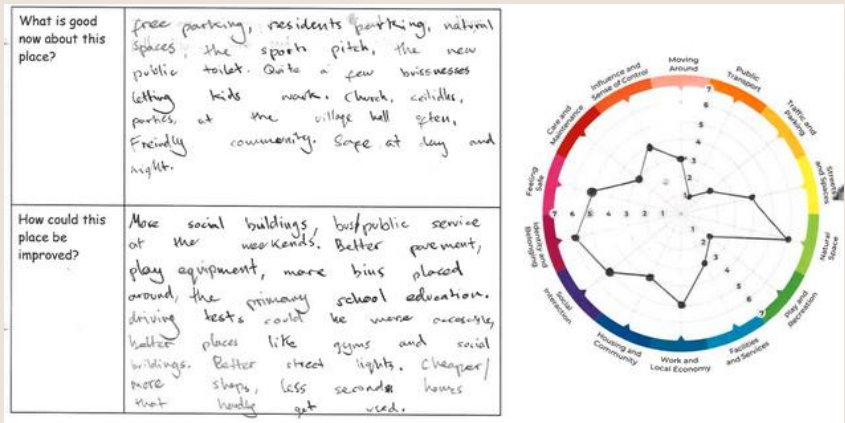 What is good
now about this
place?
free parking, residents parking, natural
spaces, the sports pitch, the new
public toilet. Quite a few buissnesses
letting kids work. Church, ceilidhs,
parties, at the village hall often,
Freindly community. Safe at day and
night.
How could this
place be
improved?
More social buildings, bus/public service
at the weekends. Better pavement,
play equipment, more bins placed
around, the primary school education.
driving tests could be more accessible,
better places like gyms and social
buildings. Better street lights. Cheaper/
more shops, less second homes
that hardly get used.
Moving
Around
Public
Transport
Traffic and
Parking
Streets
and Spaces
Natural
Space
Play and
Recreation
Facilities
and Services
Work and
Local Economy
Housing and
Community
Social
Interaction
Identity and
Belonging
Feeling
Safe
Care and
Maintenance
Influence and
Sense of Control
7
6
5
4
3
2
1
7 6 5 4 3 2 1
1
2
3
4
5
6
7